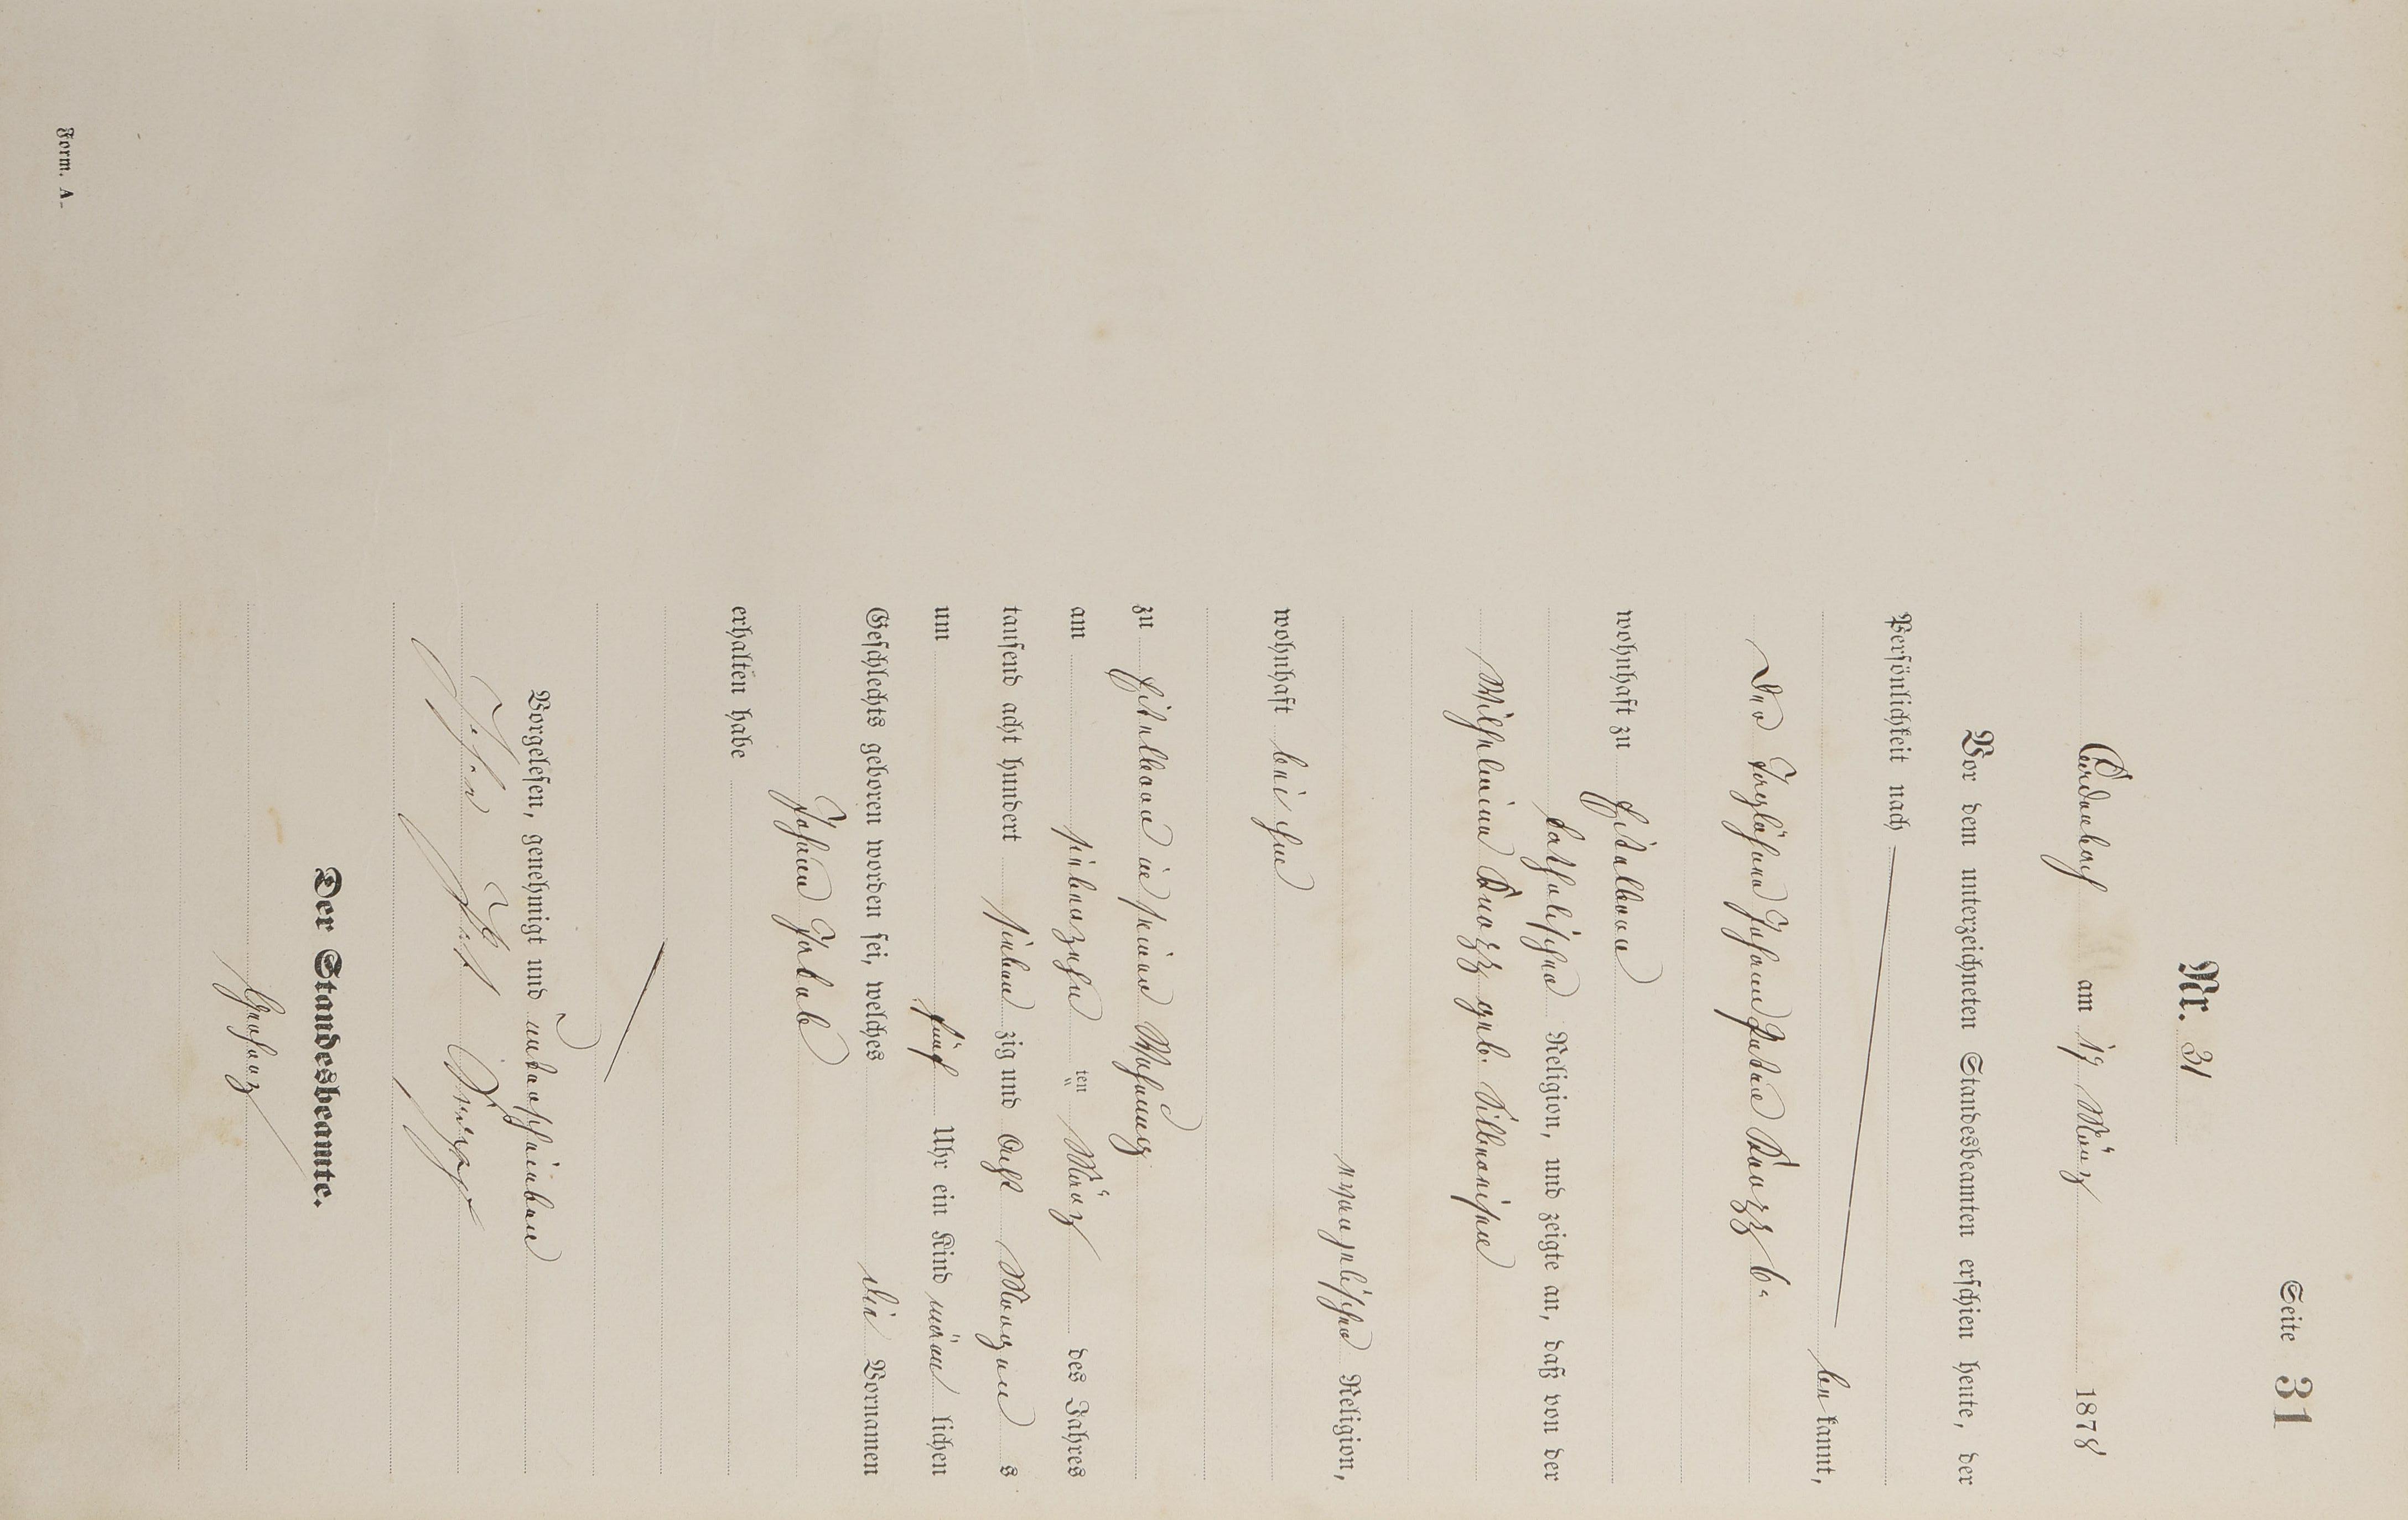 Seite 31
Nr. 31
am 19 März 1878
Vor dem unterzeichneten Standesbeamten erschien heute, der
Persönlichkeit nach
bekannt,
der Tagelöhner Johann
wohnhaft zu
katholischer Religion, und zeigte an, daß von der
Wilhelmine geb.
evangelischer Religion,
wohnhaft bei ihm
zu in seiner Wohnung
am siebenzehn ten März des Jahres
tausend acht hundert sieben zig und Acht Morgen s
um fünf Uhr ein Kind männ lichen
Geschlechts geboren worden sei, welches die Vornamen
Johann Jakob
erhalten habe
Vorgelesen, genehmigt und unterschrieben
Der Standesbeamte.
Form. A.